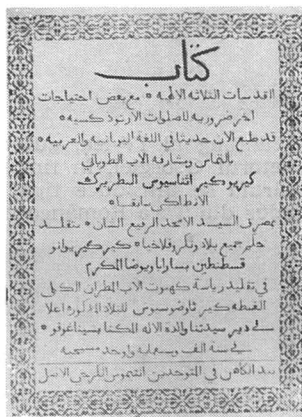 كتاب
القدسات الثلاثه الالهية ٭ مع بعض احتياجات
اخر ضروريه للصلوات الارتودكسيه ٭
قد طبع الان حديثا في اللغة اليونانيه والعربيه ٭
بالتماس ومشارفة الاب الطوباني
كيريو كير اثناسيوس البطريرك
الانطاكي سابقا ٭
بمصرف السيد الامجد الرفيع الشان ٭ متقلد
حكم جميع بلاد ونكروفلاخيا ٭ كير كير يوانو
قسطنطين بسارابا ويوضا المكرم
في تقليد رياسة كهنوت الاب المطران الكلي
القبطه كير ثاوضوسيوس للبلاد المذكوره اعلا
في دير سيدتنا والدة الاله المكنا بسيناغوفو ٭
في سنة الف وسبعمايه واوحد مسيحيه
بيد الكاهن في المتوحدين انتيموس الكرجي الاصل